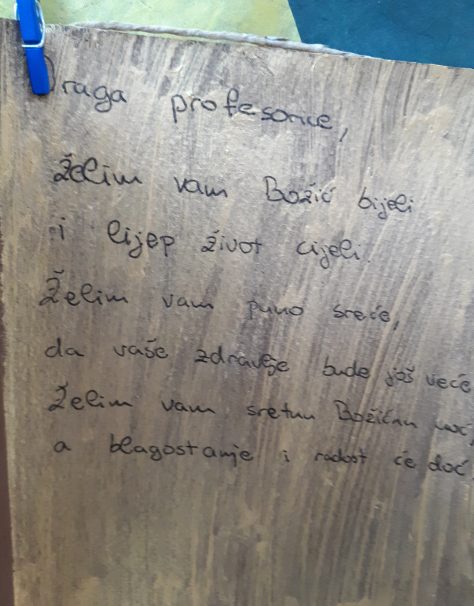 Draga profesorice,
želim vam Božić bijeli
i lijep život cijeli.
Želim vam puno sreće,
da vaše zdravlje bude još veće
Želim vam sretnu Božićnu noć,
a blagostanje i radost će doć.